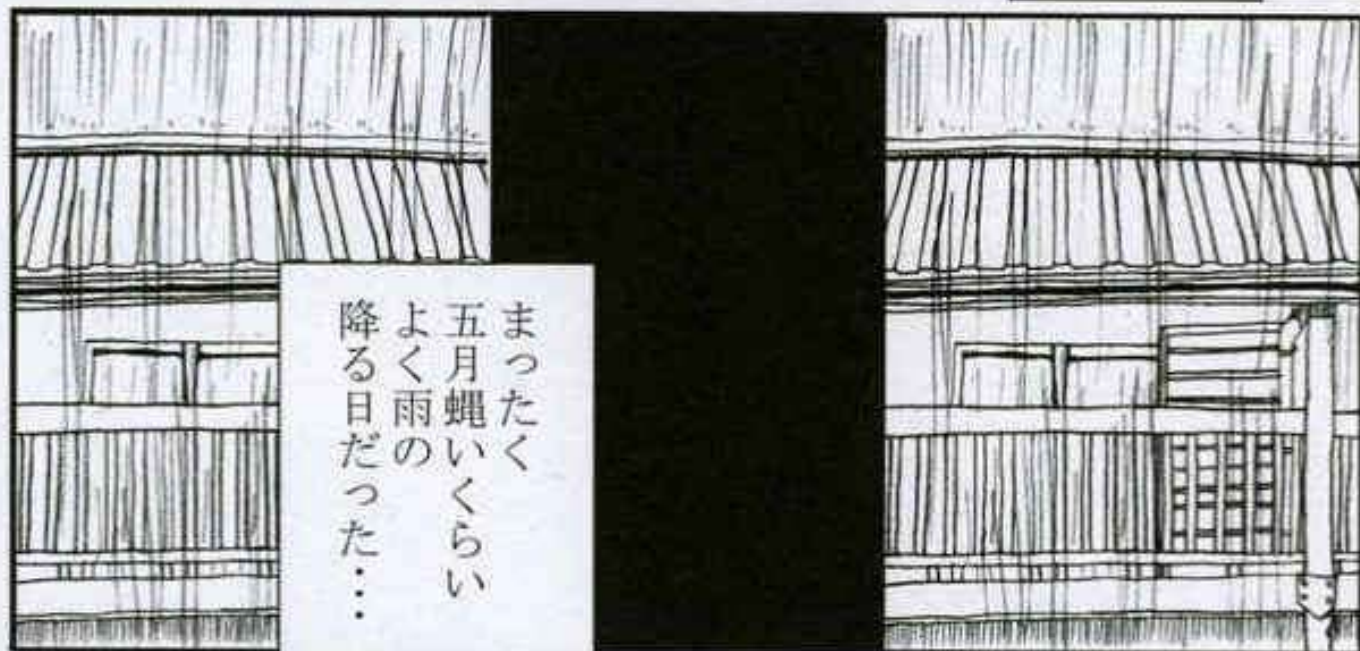 まったく
五月蝿いくらい
よく雨の
降る日だった・・・